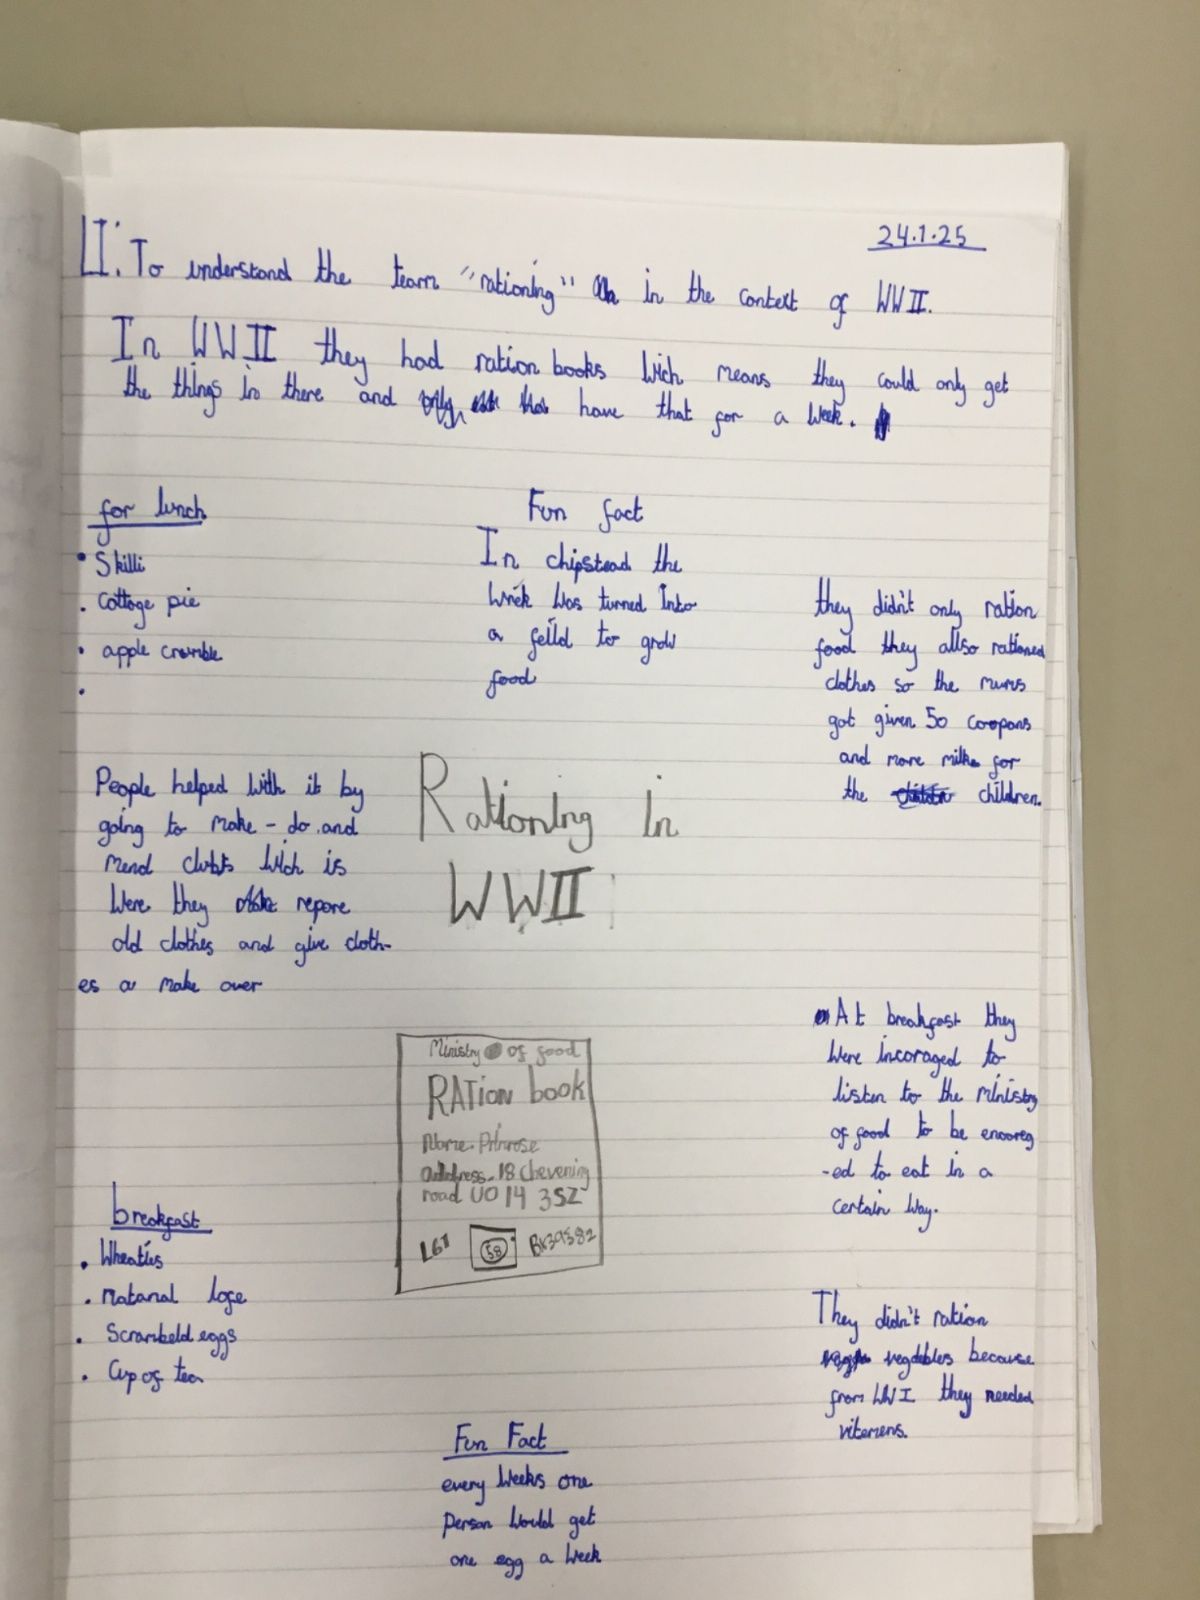 24.1.25
LI: To understand the team "rationing" in the context of WWII.
In WWII they had ration books wich means they could only get
the things in there and have that for a week.
for lunch
• Skilli
• cottage pie
• apple crumble
•
Fun fact
In chipstead the
was turned into
a feild to grow
food
they didn't only ration
food they allso rationed
clothes so the mums
got given 50 coopans
and more milk for
the children.
People helped with it by
going to make-do and
mend clubs wich is
were they repare
old clothes and give cloth-
es a make over
Rationing in
WWII
At breakfast they
were incoraged to
listen to the ministry
of food to be encoreg
-ed to eat in a
certain way.
Ministry of food
RATion book
Name. Primrose
address - 18 Chevening
road UO14 3SZ
L61
58
BK39582
breakfast
• Wheaties
• natanal lofe
• Scrambeld eggs
• Cup of tea
They didn't ration
vegtebles because
from WWI they needed
vitemens.
Fun Fact
every weeks one
person would get
one egg a week